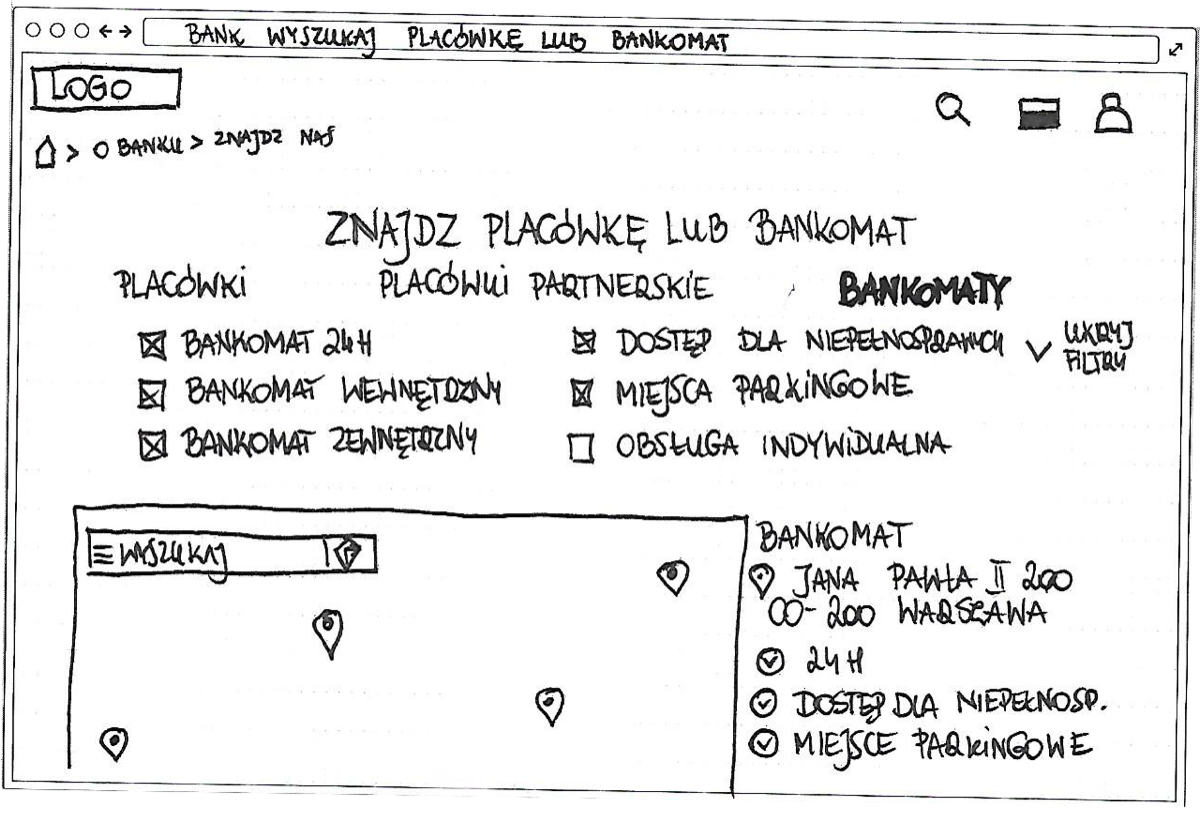 BANK WYSZUKAJ PLACÓWKĘ LUB BANKOMAT
LOGO
> O BANKU > ZNAJDZ NAS
ZNAJDZ PLACÓWKĘ LUB BANKOMAT
PLACÓWKI PLACÓWKI PARTNERSKIE BANKOMATY
BANKOMAT 24H DOSTĘP DLA NIEPEŁNOSPRAWNYCH UKRYJ
FILTRY
BANKOMAT WEWNĘTRZNY MIEJSCA PARKINGOWE
BANKOMAT ZEWNĘTRZNY OBSŁUGA INDYWIDUALNA
WYSZUKAJ
BANKOMAT
JANA PAWŁA II 200
00-200 WARSZAWA
24H
DOSTĘP DLA NIEPEŁNOSP.
MIEJSCE PARKINGOWE